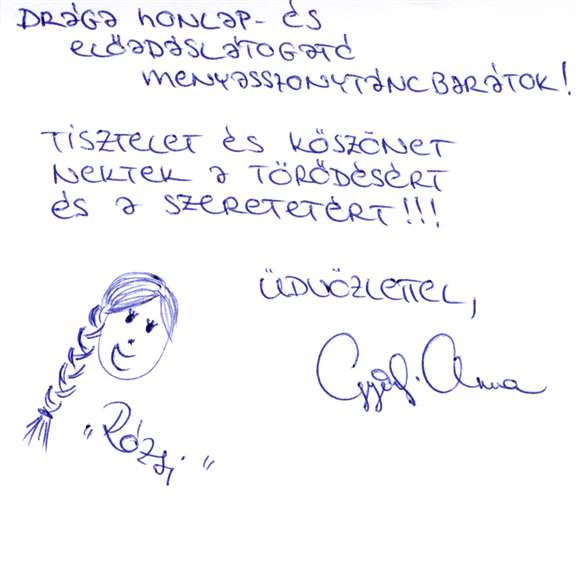 DRÁGA HONLAP- ÉS
ELŐADÁSLÁTOGATÓ
MENYASSZONYTÁNCBARÁTOK!
TISZTELET ÉS KÖSZÖNET
NEKTEK A TÖRŐDÉSÉRT
ÉS A SZERETETÉRT!!!
ÜDVÖZLETTEL,
Anna
„Rózsi"